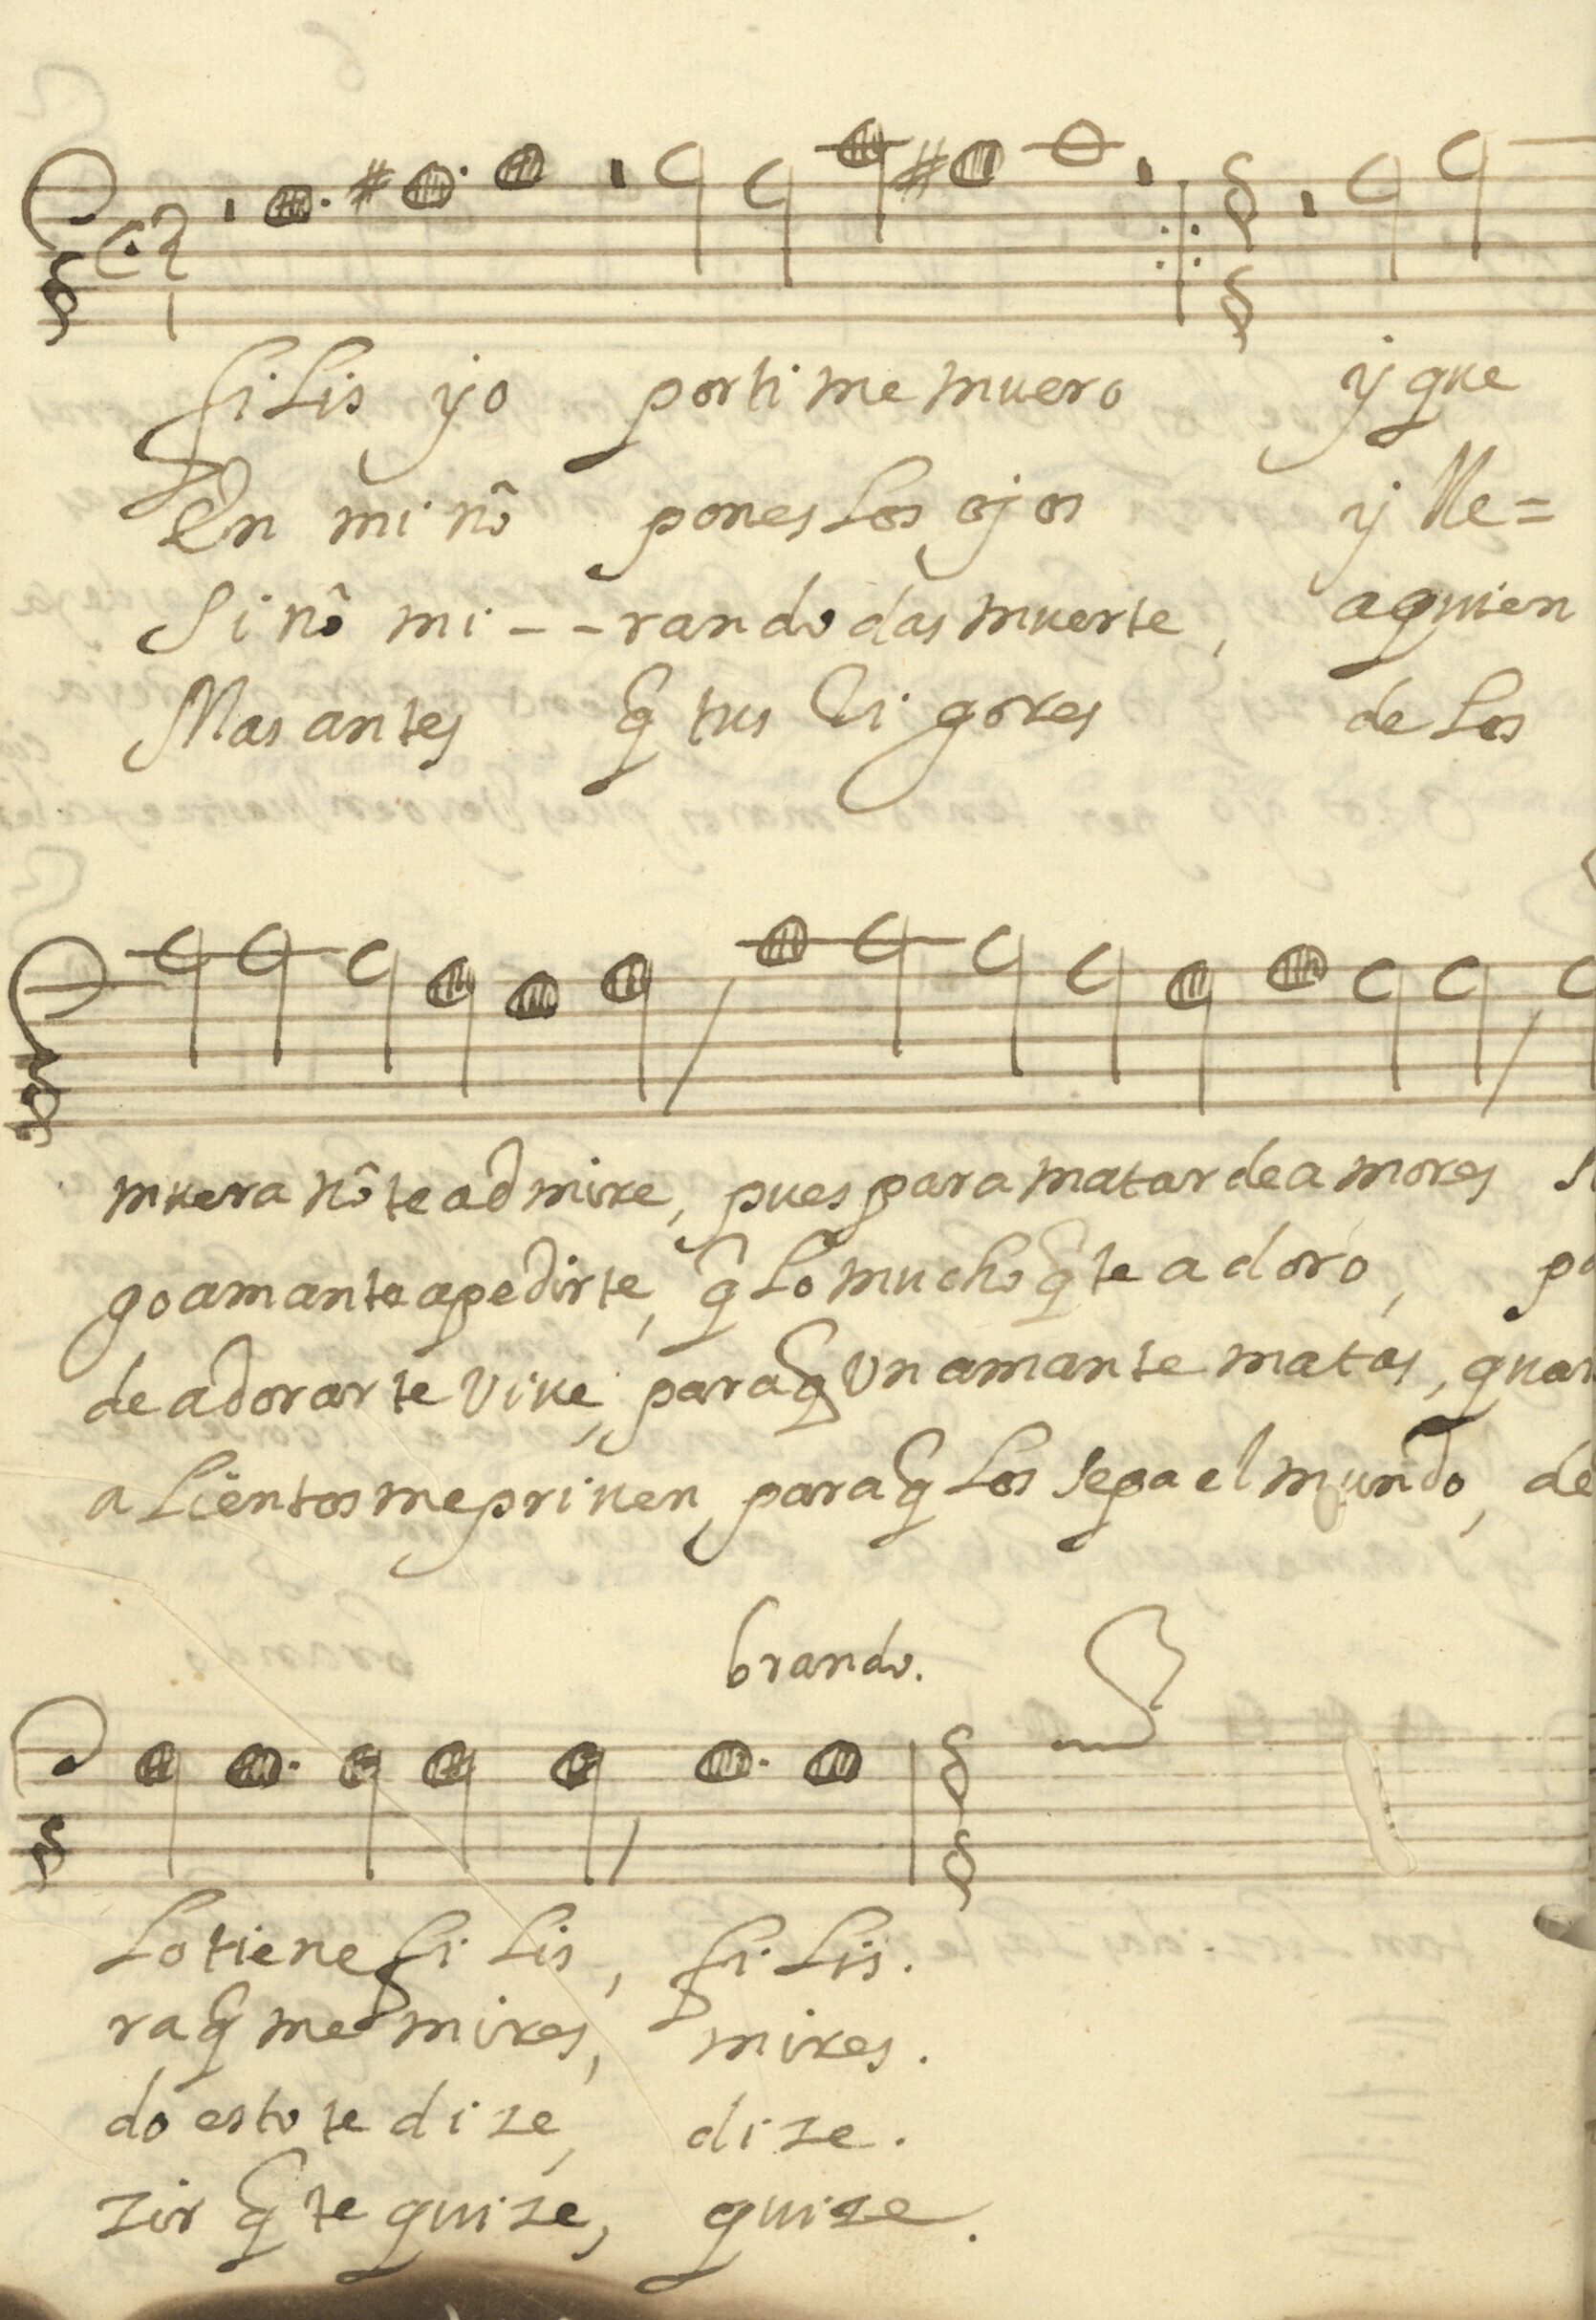 filis yo por ti me muero y que
En mi nô pones los ojos y lle=
Si nô mi - - rando das muerte, a quien
Mas antes q̃ tus Rigores de los
muera nô te admire, pues para matar de amores
go amante a pedirte, q̃ lo mucho q̃ te adoro, pa
de adorarte viue, para q̃ vn amante matas, quan
alientos me priuen, para q̃ los sepa el mundo, de
brando.
lo tiene filis, filis.
ra q̃ me mires, mires.
do esto te dize, dize.
zir q̃ te quize, quize.